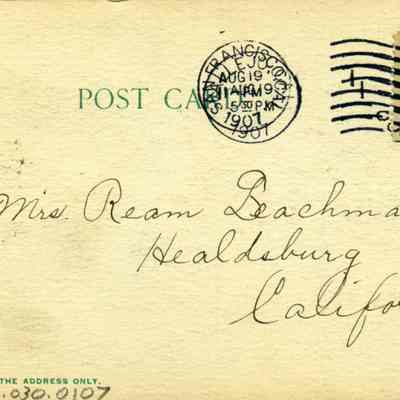 POST CAR
SAN FRANCISCO, CAL.
AUG 19
5 30 PM
1907
1907
Mrs. Ream Bachma
Healdsburg
Califo
THE ADDRESS ONLY.
.030.0107